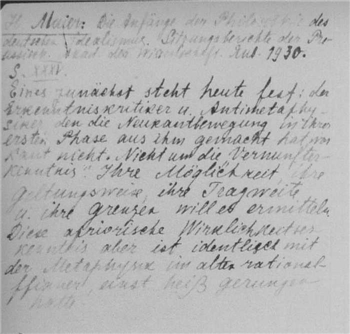 H. Maier: Die Anfänge der Philosophie des
deutschen Idealismus. Sitzungsberichte der Pre
ussisch. Akad. der Wissensch. Aus. 1930.
S. XXIV.
Eines zunächst steht heute fest: der
Erkenntniskritiker u. Antimetaphy-
siker den die Neukantbewegung in ihrer
ersten Phase aus ihm gemacht hat war
Kant nicht. Nicht um die Vernunfter-
kenntnis Ihre Möglichkeit ihre
Geltungsweise, ihre Tragweite
u. ihre Grenzen will er ermitteln
Diese apriorische Wirklichkeitser-
kenntnis aber ist identisch mit
der Metaphysik im alten rational-
einst heiß gerungen
hatte